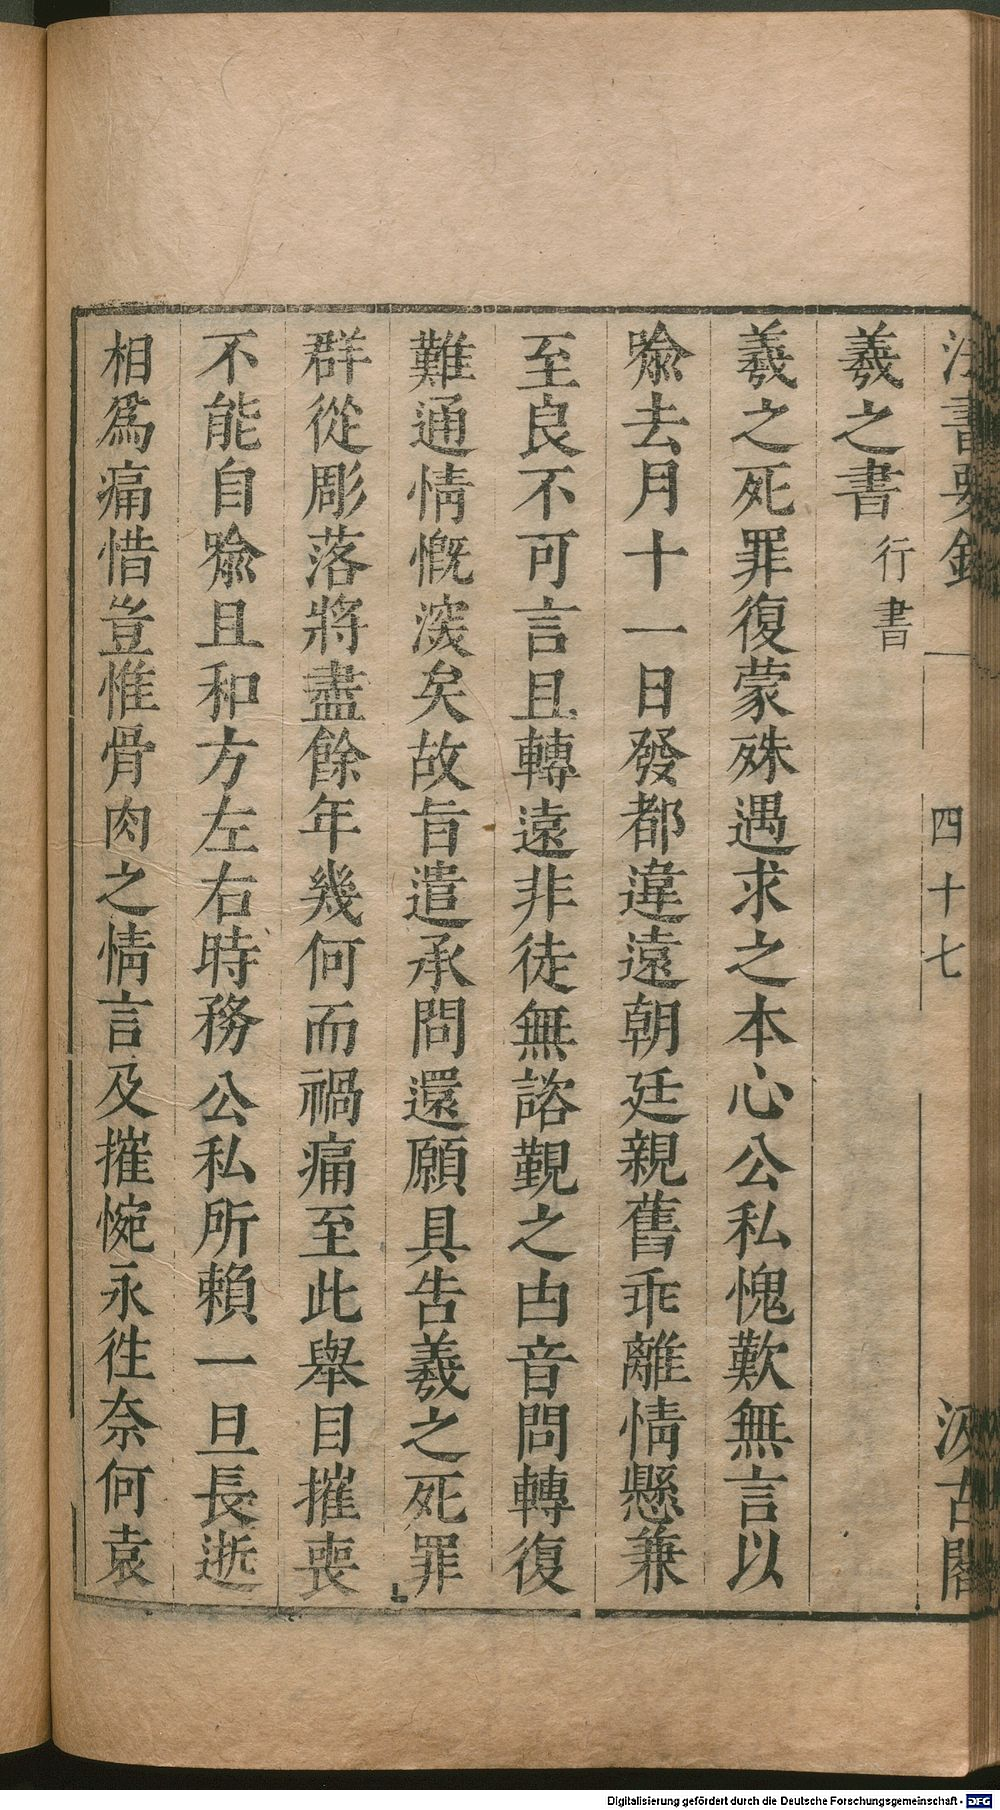 法書要錄 一 四十七 汲古閣
羲之書 行書
羲之死罪復蒙殊遇求之本心公私愧歎無言以
喩去月十一日發都違遠朝廷親舊乖離情懸兼
至良不可言且轉遠非徒無諮覲之由音問轉復
難通情慨深矣故旨遣承問還願具告羲之死罪
群從彫落將盡餘年幾何而禍痛至此舉目摧喪
不能自喩且和方左右時務公私所賴一旦長逝
相爲痛惜豈惟骨肉之情言及摧惋永往奈何袁
Digitalisierung gefördert durch die Deutsche Forschungsgemeinschaft - DFG